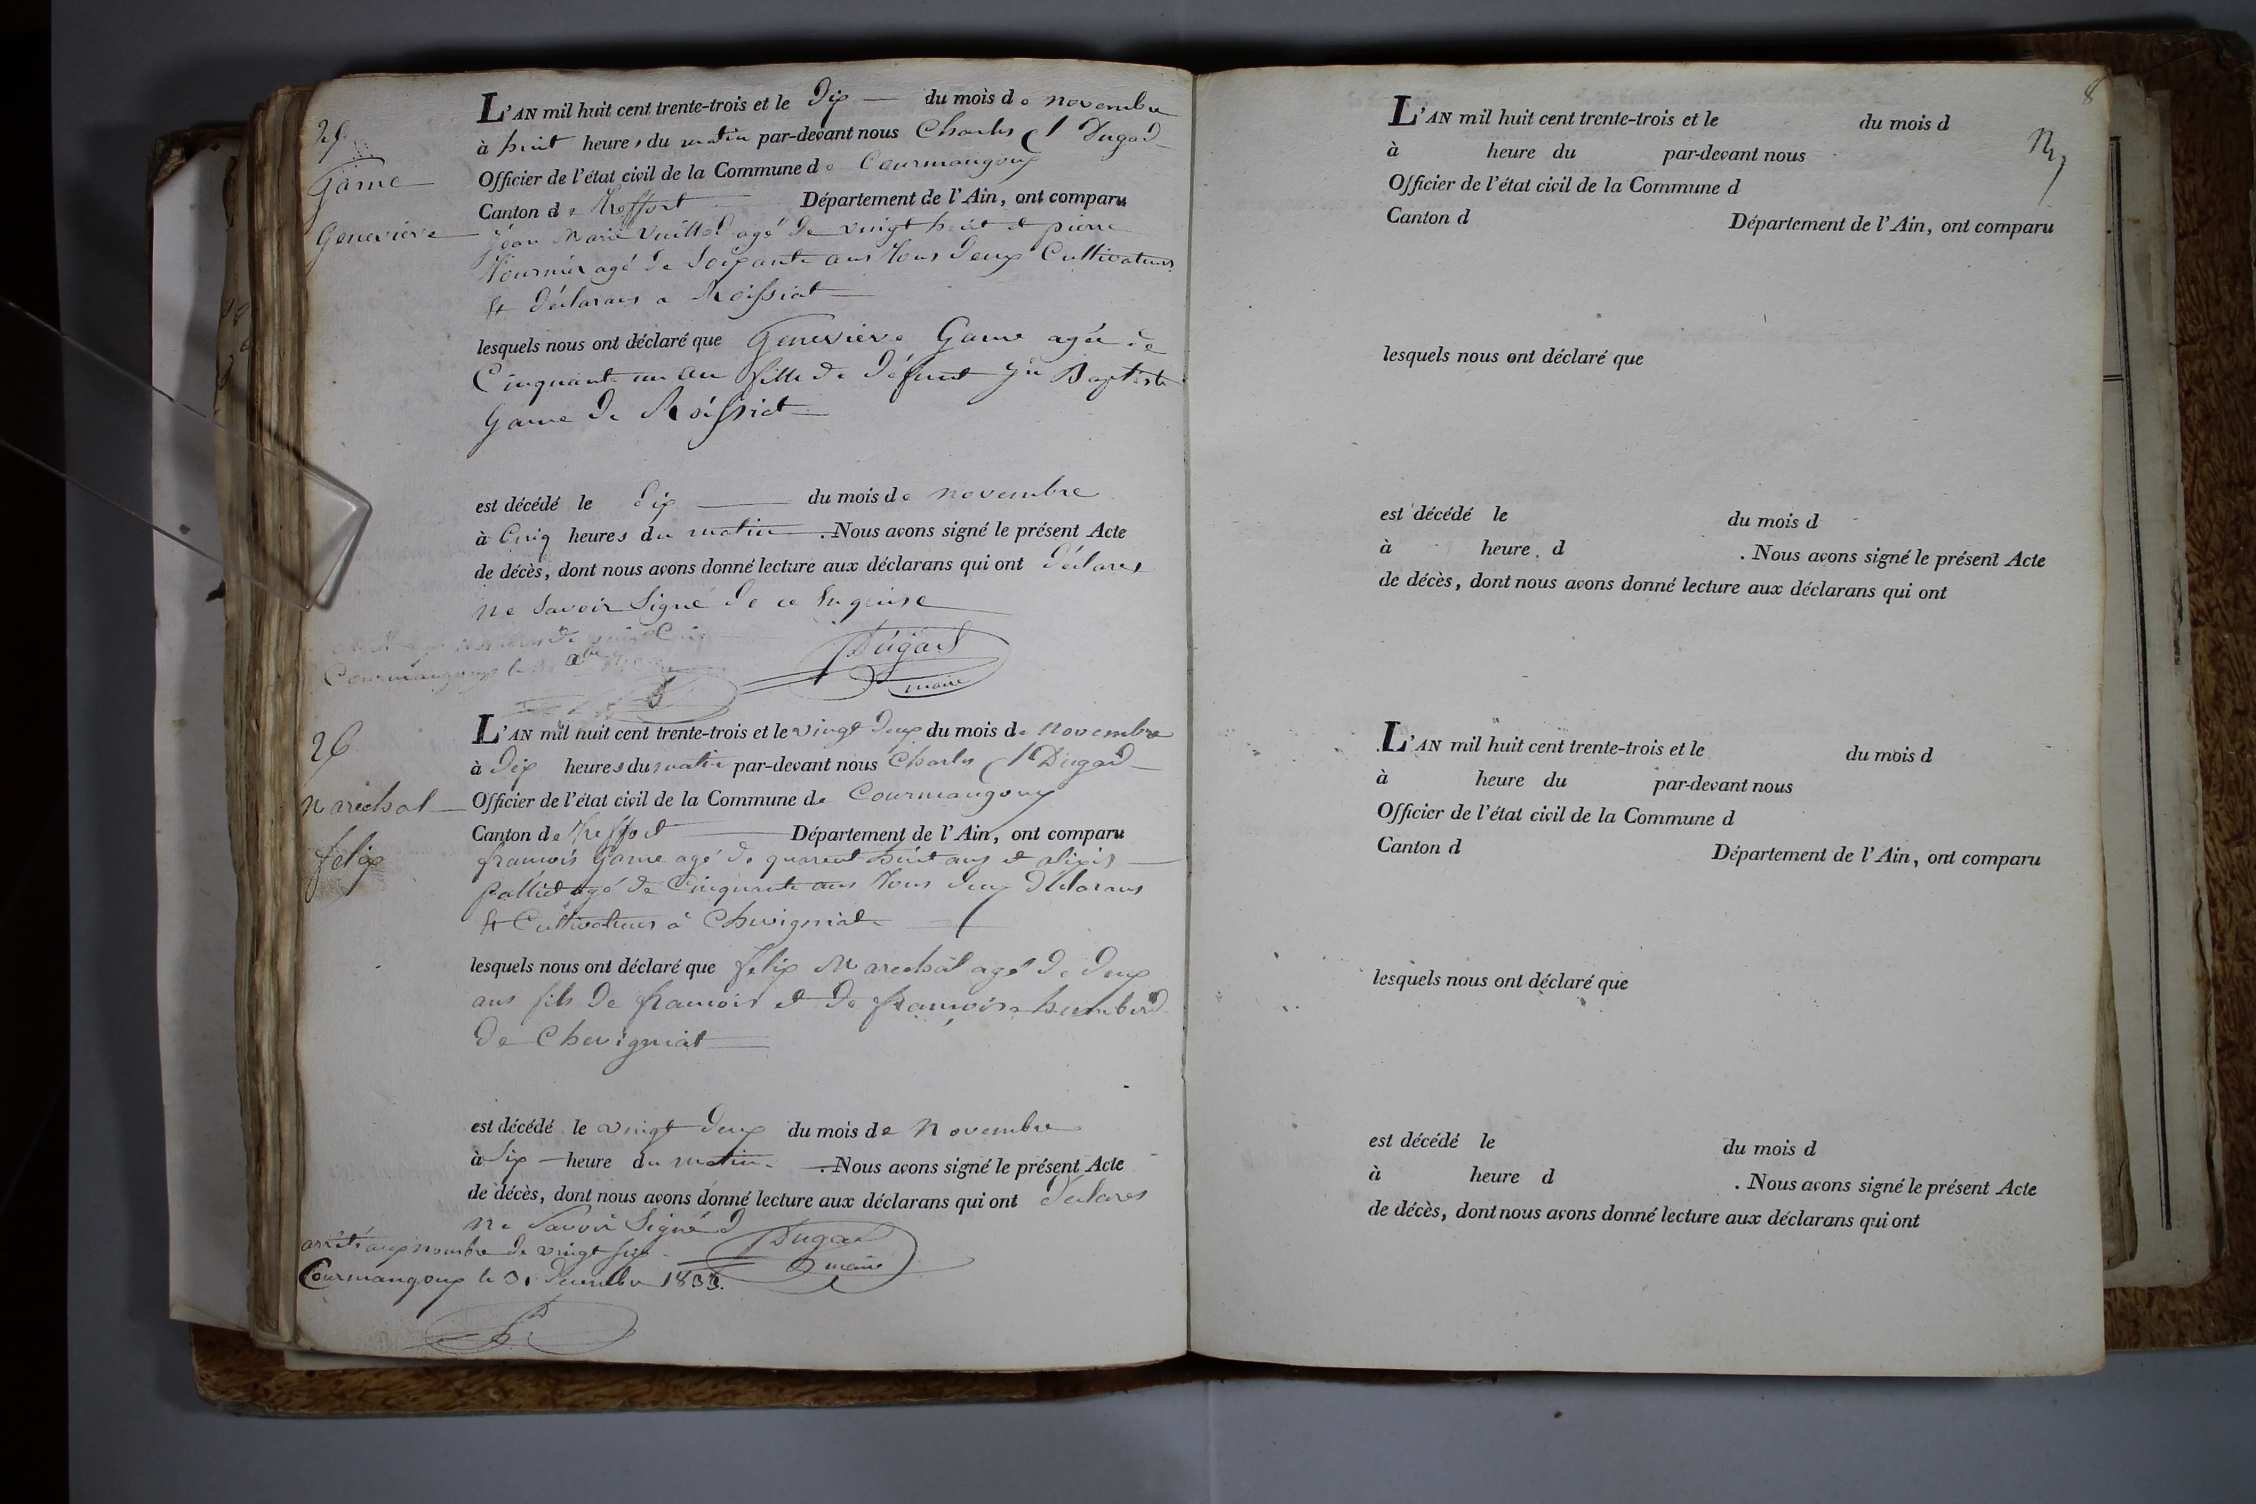 25.
Game
Genevieve
L'AN mil huit cent trente-trois et le dix du mois de novembre
à huit heures du matin par-devant nous Charles Dugad
Officier de l'état civil de la Commune de Courmangoux
Canton de Treffort Département de l'Ain, ont comparu
jean Marie Vuillod agé de vingt huit et pierre
fournier agé de Soixante ans tous deux Cultivateurs
et déclarans a Roissiat
lesquels nous ont déclaré que Genevieve Game agée de
Cinquante un an fille de défunt Jn Baptiste
Game de Roissiat
est décédé le dix du mois de novembre
à Cinq heures du matin. Nous avons signé le présent Acte
de décès, dont nous avons donné lecture aux déclarans qui ont déclarer
ne Savoir Signé de ce Enquise
Courmangoux le
Dugad
maire
26
Marechal
felix
L'AN mil huit cent trente-trois et le vingt deux du mois de novembre
à dix heures du matin par-devant nous Charles Dugad
Officier de l'état civil de la Commune de Courmangoux
Canton de Treffort Département de l'Ain, ont comparu
francois Game agé de quarent huit ans et alixis
pallied agé de Cinquante ans tous deux déclarans
et Cultivateurs à Chevigniat
lesquels nous ont déclaré que felix Marechal agé de deux
ans fils de francois et de francoise humberd
de Chevigniat
est décédé le vingt deux du mois de novembre
à Six heure du matin. Nous avons signé le présent Acte
de décès, dont nous avons donné lecture aux déclarans qui ont déclarer
ne Savoir Signé
Dugad
maire
arrêté aux nombre de vingt six
Courmangoux le 31 décembre 1833.
8
L'AN mil huit cent trente-trois et le du mois d
à heure du par-devant nous
Officier de l'état civil de la Commune d
Canton d Département de l'Ain, ont comparu
lesquels nous ont déclaré que
est décédé le du mois d
à heure d . Nous avons signé le présent Acte
de décès, dont nous avons donné lecture aux déclarans qui ont
L'AN mil huit cent trente-trois et le du mois d
à heure du par-devant nous
Officier de l'état civil de la Commune d
Canton d Département de l'Ain, ont comparu
lesquels nous ont déclaré que
est décédé le du mois d
à heure d . Nous avons signé le présent Acte
de décès, dont nous avons donné lecture aux déclarans qui ont